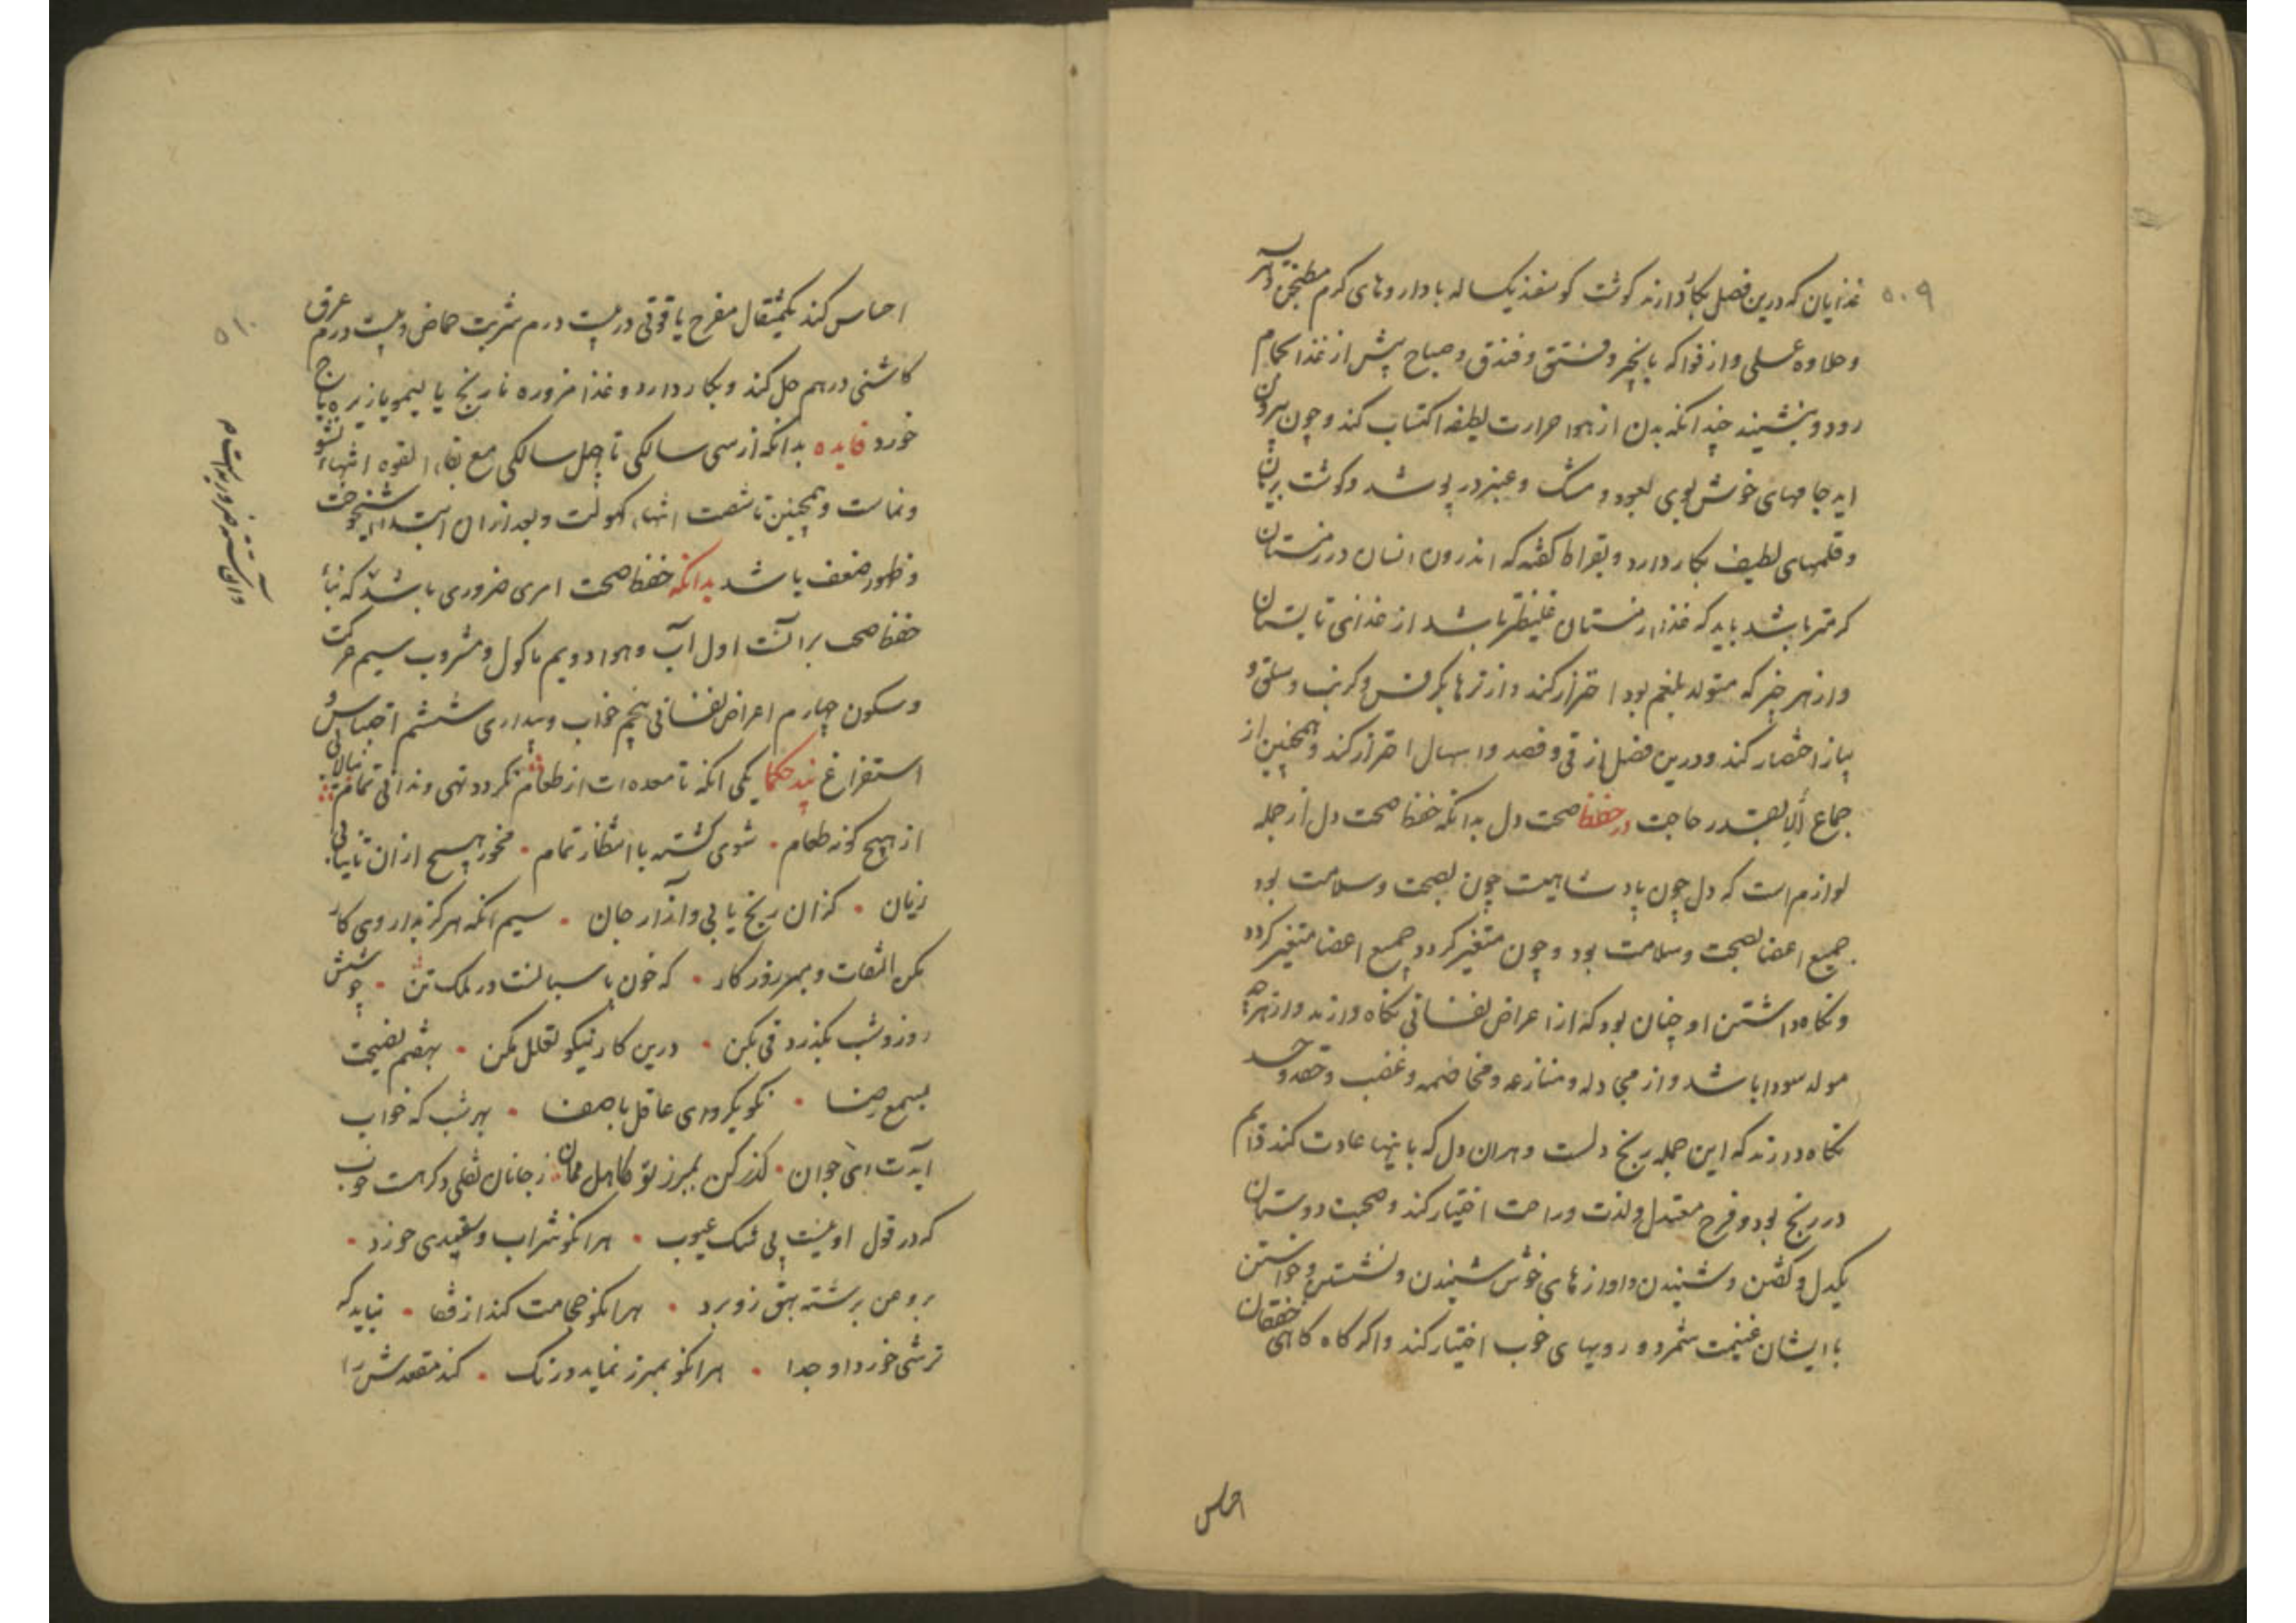 ۵۰۹
غذایان که درین فصل بکار دارند کوشت کوسفند یکساله با داروهای کرم مطنجن و هریسه
و حلاوه عسلی و از فواکه بانجیر و فستق و فندق و صباح پیش از غذا بحمام
رود و بنشیند چندانکه بدن از هوا حرارت لطیفه اکتساب کند و چون بیرون
اید جامهای خوش بوی بعود و مشک و عنبر در پوشد و کوشت بریان
و قلیهای لطیف بکار دارد و بقراط کفته که اندرون انسان در زمستان
کرمتر باشد باید که غذا زمستان غلیظتر باشد از غذای تابستان
و از هر چیز که متولد بلغم بود احتراز کند و از ترها بکرفس و کرنب و سلق و
پیاز اختصار کند و درین فصل از قی و فصد و اسهال احتراز کند و همچنین از
جماع الا بقدر حاجت در حفظ صحت دل بدانکه حفظ صحت دل از جمله
لوازم است که دل چون پادشاهیست چون بصحت و سلامت بود
جمیع اعضا بصحت و سلامت بود و چون متغیر کردد جمیع اعضا متغیر کردد
و نکاه داشتن او چنان بود که از اعراض نفسانی نکاه دارند و از هرچه
مولد سودا باشد و از مجادله و منازعه و مخاصمه و غضب و حقد و حسد
نکاه دارند که این جمله رنج دلست و هران دل که باینها عادت کند دایم
در رنج بود و فرح معتدل و لذت و راحت اختیار کند و صحبت دوستان
یکدل و کفتن و شنیدن و اوازهای خوش شنیدن و نشستن و خواستن
با ایشان غنیمت شمرد و رویهای خوب اختیار کند و اکر کاه کاهی خفقان
احساس
۵۱۰
احساس کند یکمثقال مفرح یاقوتی در بیست درم شربت حماض و بیست درم عرق
کاسنی درهم حل کند و بکار دارد و غذا مزوره نارنج یا لیمو یا زیره باج
خورد فایده بدانکه از سی سالکی تا چهل سالکی مع بقاء القوه انتهاء نشو
و نماست و همچنین تا شصت انتهاء کهولت و بعد ازان ابتداء شیخوخت
و ظهور ضعف باشد بدانکه حفظ صحت امری ضروری باشد که بناء
حفظ صحت برانست اول آب و هوا دویم ماکول و مشروب سیم حرکت
و سکون چهارم اعراض نفسانی پنجم خواب و بیداری ششم احتباس و
استفراغ پند حکما یکی انکه تا معده ات از طعام نکردد تهی و ندانی تمام نیالای
از هیچ کونه طعام شوی کشته با انتظار تمام مخور هیچ ازان تا نیابی
زیان کزان رنج یابی و آزار جان سیم انکه هرکز بداروی کار
مکن التفات و بهر روزکار که خون پاسبانست در ملک تن چو شش
روز و شب بکذرد قی بکن درین کار نیکو تعلل مکن بهشتم نصیحت
بسمع رضا نکو بکرو ای عاقل با صفا بهر شب که خواب
آیدت ای جوان کذر کن بمبرز تو کاهل ممان ز جانان نقلی دکر هست خوب
که در قول او نیست بی شک عیوب هرانکو شراب و سفیدی خورد
برو من برشته بهق زو برد هرانکو حجامت کند از قفا نباید که
ترشی خورد او جدا هرانکو بمبرز نماید درنک کند مقعدش را